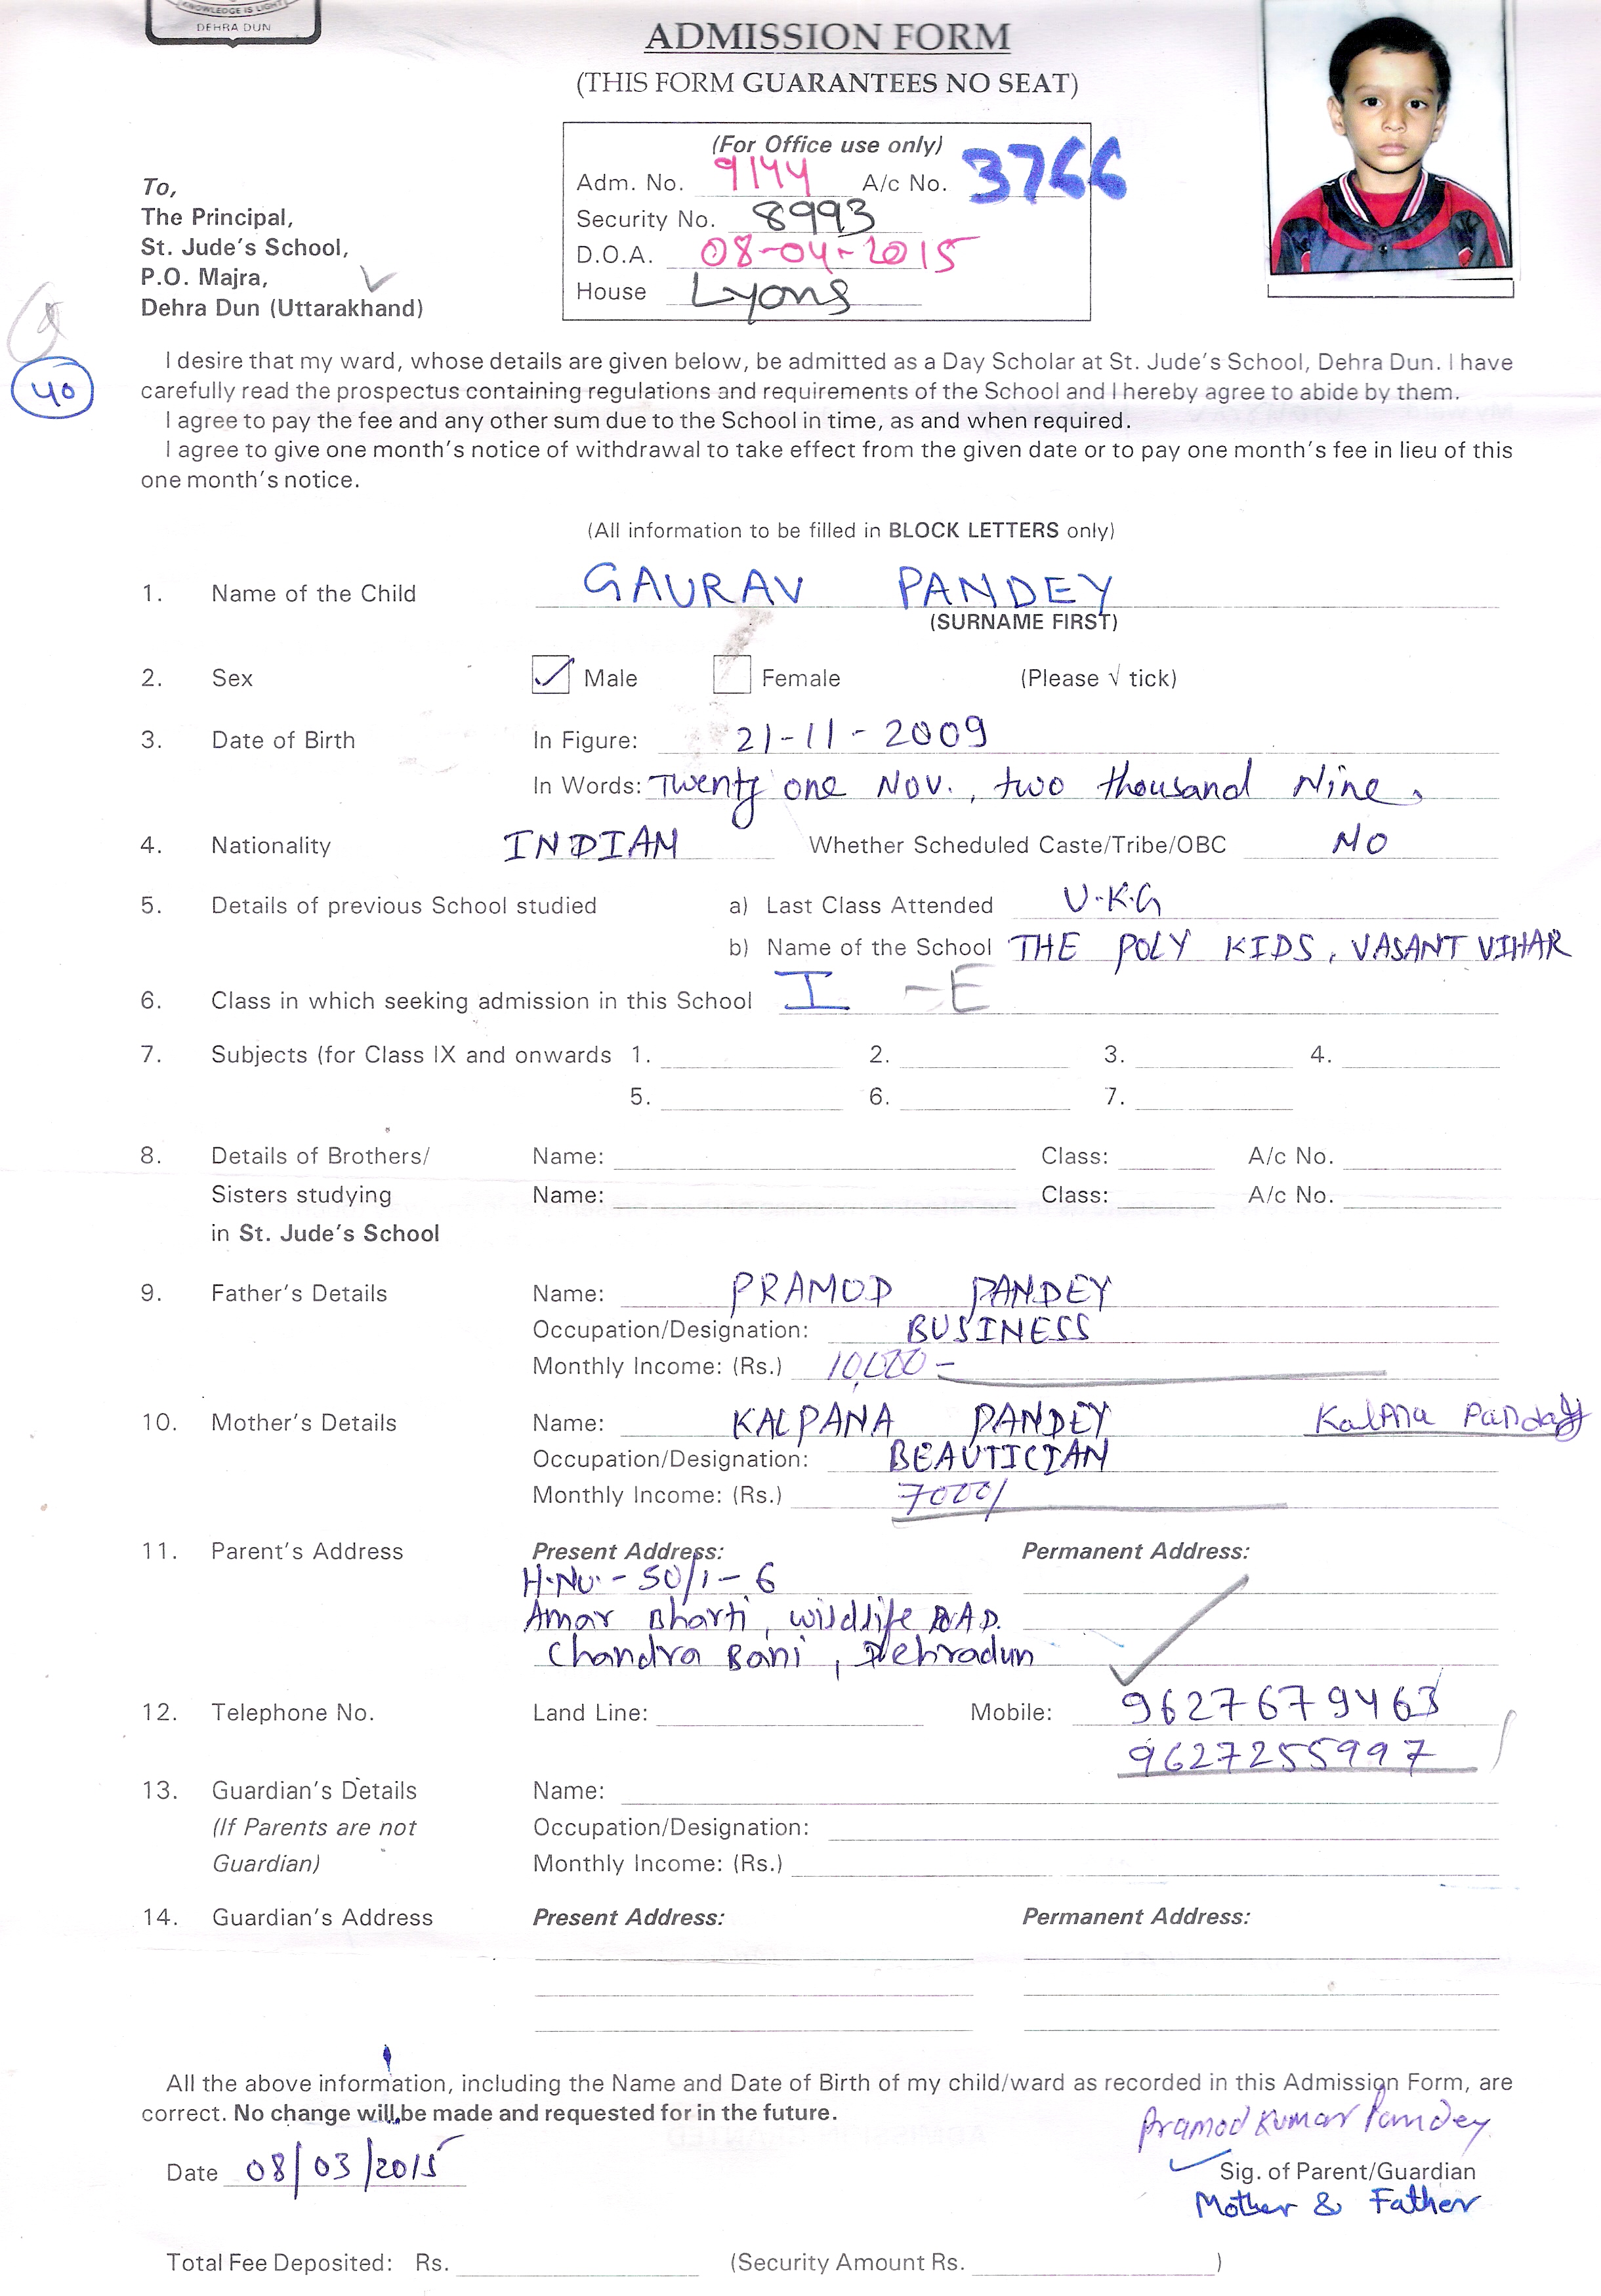 KNOWLEDGE IS LIGHT
DEHRA DUN
ADMISSION FORM
(THIS FORM GUARANTEES NO SEAT)
(For Office use only)
Adm. No. 9144 A/c No. 3766
Security No. 8993
D.O.A. 08-04-2015
House Lyons
To,
The Principal,
St. Jude's School,
P.O. Majra,
Dehra Dun (Uttarakhand)
40
I desire that my ward, whose details are given below, be admitted as a Day Scholar at St. Jude's School, Dehra Dun. I have
carefully read the prospectus containing regulations and requirements of the School and I hereby agree to abide by them.
I agree to pay the fee and any other sum due to the School in time, as and when required.
I agree to give one month's notice of withdrawal to take effect from the given date or to pay one month's fee in lieu of this
one month's notice.
(All information to be filled in BLOCK LETTERS only)
1. Name of the Child GAURAV PANDEY
(SURNAME FIRST)
2. Sex ✓ Male Female (Please √ tick)
3. Date of Birth In Figure: 21-11-2009
In Words: Twenty one Nov., two thousand Nine.
4. Nationality INDIAN Whether Scheduled Caste/Tribe/OBC NO
5. Details of previous School studied a) Last Class Attended U.K.G
b) Name of the School THE POLY KIDS, VASANT VIHAR
6. Class in which seeking admission in this School I -E
7. Subjects (for Class IX and onwards 1. 2. 3. 4.
5. 6. 7.
8. Details of Brothers/ Name: Class: A/c No.
Sisters studying Name: Class: A/c No.
in St. Jude's School
9. Father's Details Name: PRAMOD PANDEY
Occupation/Designation: BUSINESS
Monthly Income: (Rs.) 10,000 -
10. Mother's Details Name: KALPANA PANDEY Kalpna Panday
Occupation/Designation: BEAUTICIAN
Monthly Income: (Rs.) 7000/
11. Parent's Address Present Address: Permanent Address:
H.No. - 50/1 - 6
Amar Bharti, wildlife ROAD.
Chandra Bani, Dehradun
12. Telephone No. Land Line: Mobile: 9627679463
9627255997
13. Guardian's Details Name:
(If Parents are not Occupation/Designation:
Guardian) Monthly Income: (Rs.)
14. Guardian's Address Present Address: Permanent Address:
All the above information, including the Name and Date of Birth of my child/ward as recorded in this Admission Form, are
correct. No change will be made and requested for in the future.
Pramod Kumar Pandey
Date 08/03/2015 Sig. of Parent/Guardian
Mother & Father
Total Fee Deposited: Rs. (Security Amount Rs. )